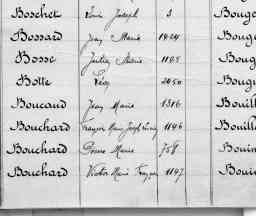 Boschet Louis Joseph 3 Boug
Bossard Jean Marie 1424 Boug
Bosse Julien Marie 1195 Boug
Botte Léon 2450 Bougu
Boucaud Jean Marie 1316 Bouill
Bouchard François Marie Joseph 1146 Bouille
Bouchard Pierre Marie 758 Bouin
Bouchard Victor Marie François 1197 Bouin